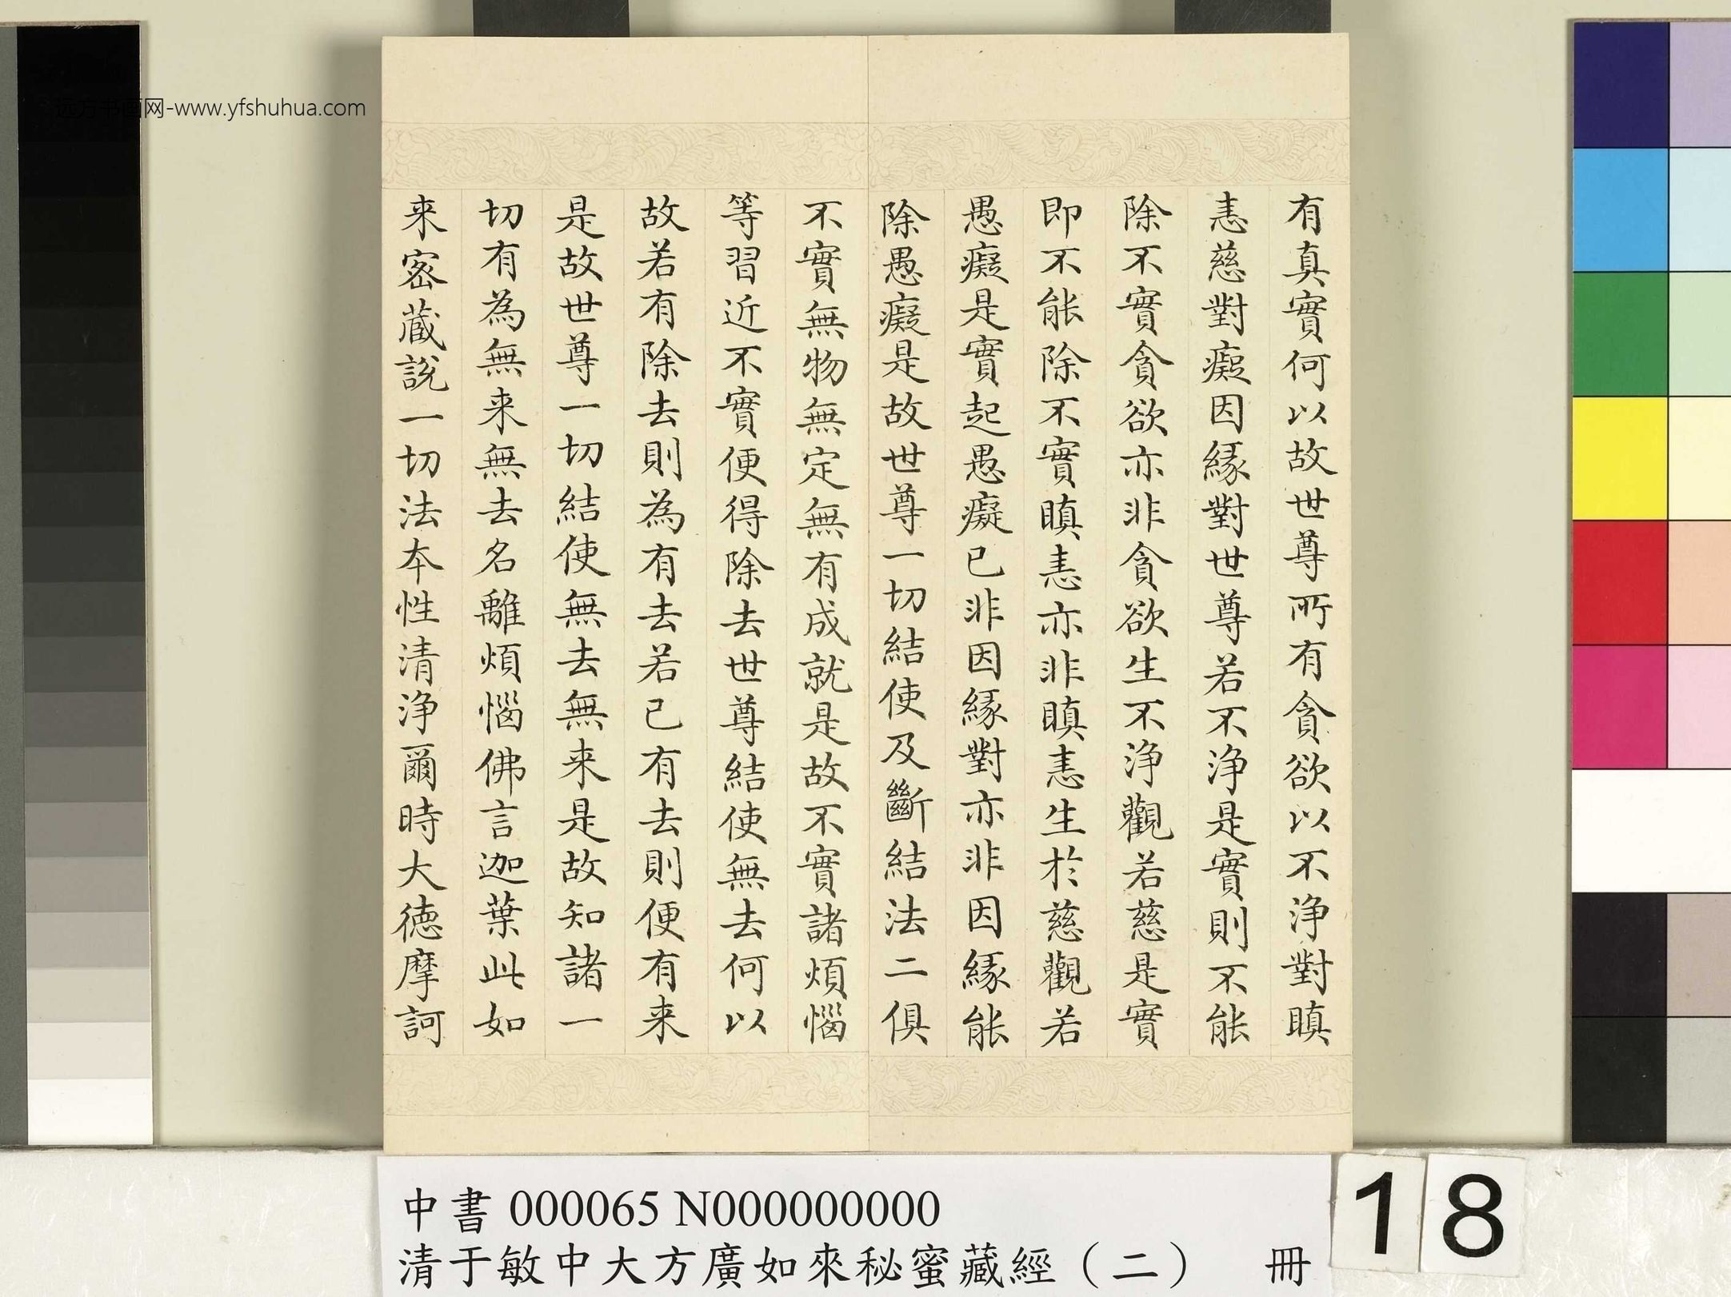 有真實何以故世尊所有貪欲以不淨對瞋
恚慈對癡因緣對世尊若不淨是實則不能
除不實貪欲亦非貪欲生不淨觀若慈是實
即不能除不實瞋恚亦非瞋恚生於慈觀若
愚癡是實起愚癡已非因緣對亦非因緣能
除愚癡是故世尊一切結使及斷結法二俱
不實無物無定無有成就是故不實諸煩惱
等習近不實便得除去世尊結使無去何以
故若有除去則為有去若已有去則便有来
是故世尊一切結使無去無来是故知諸一
切有為無来無去名離煩惱佛言迦葉此如
来密藏說一切法本性清淨爾時大德摩訶
中書 000065 N000000000
清于敏中大方廣如來秘蜜藏經（二） 冊
18
远方书画网-www.yfshuhua.com